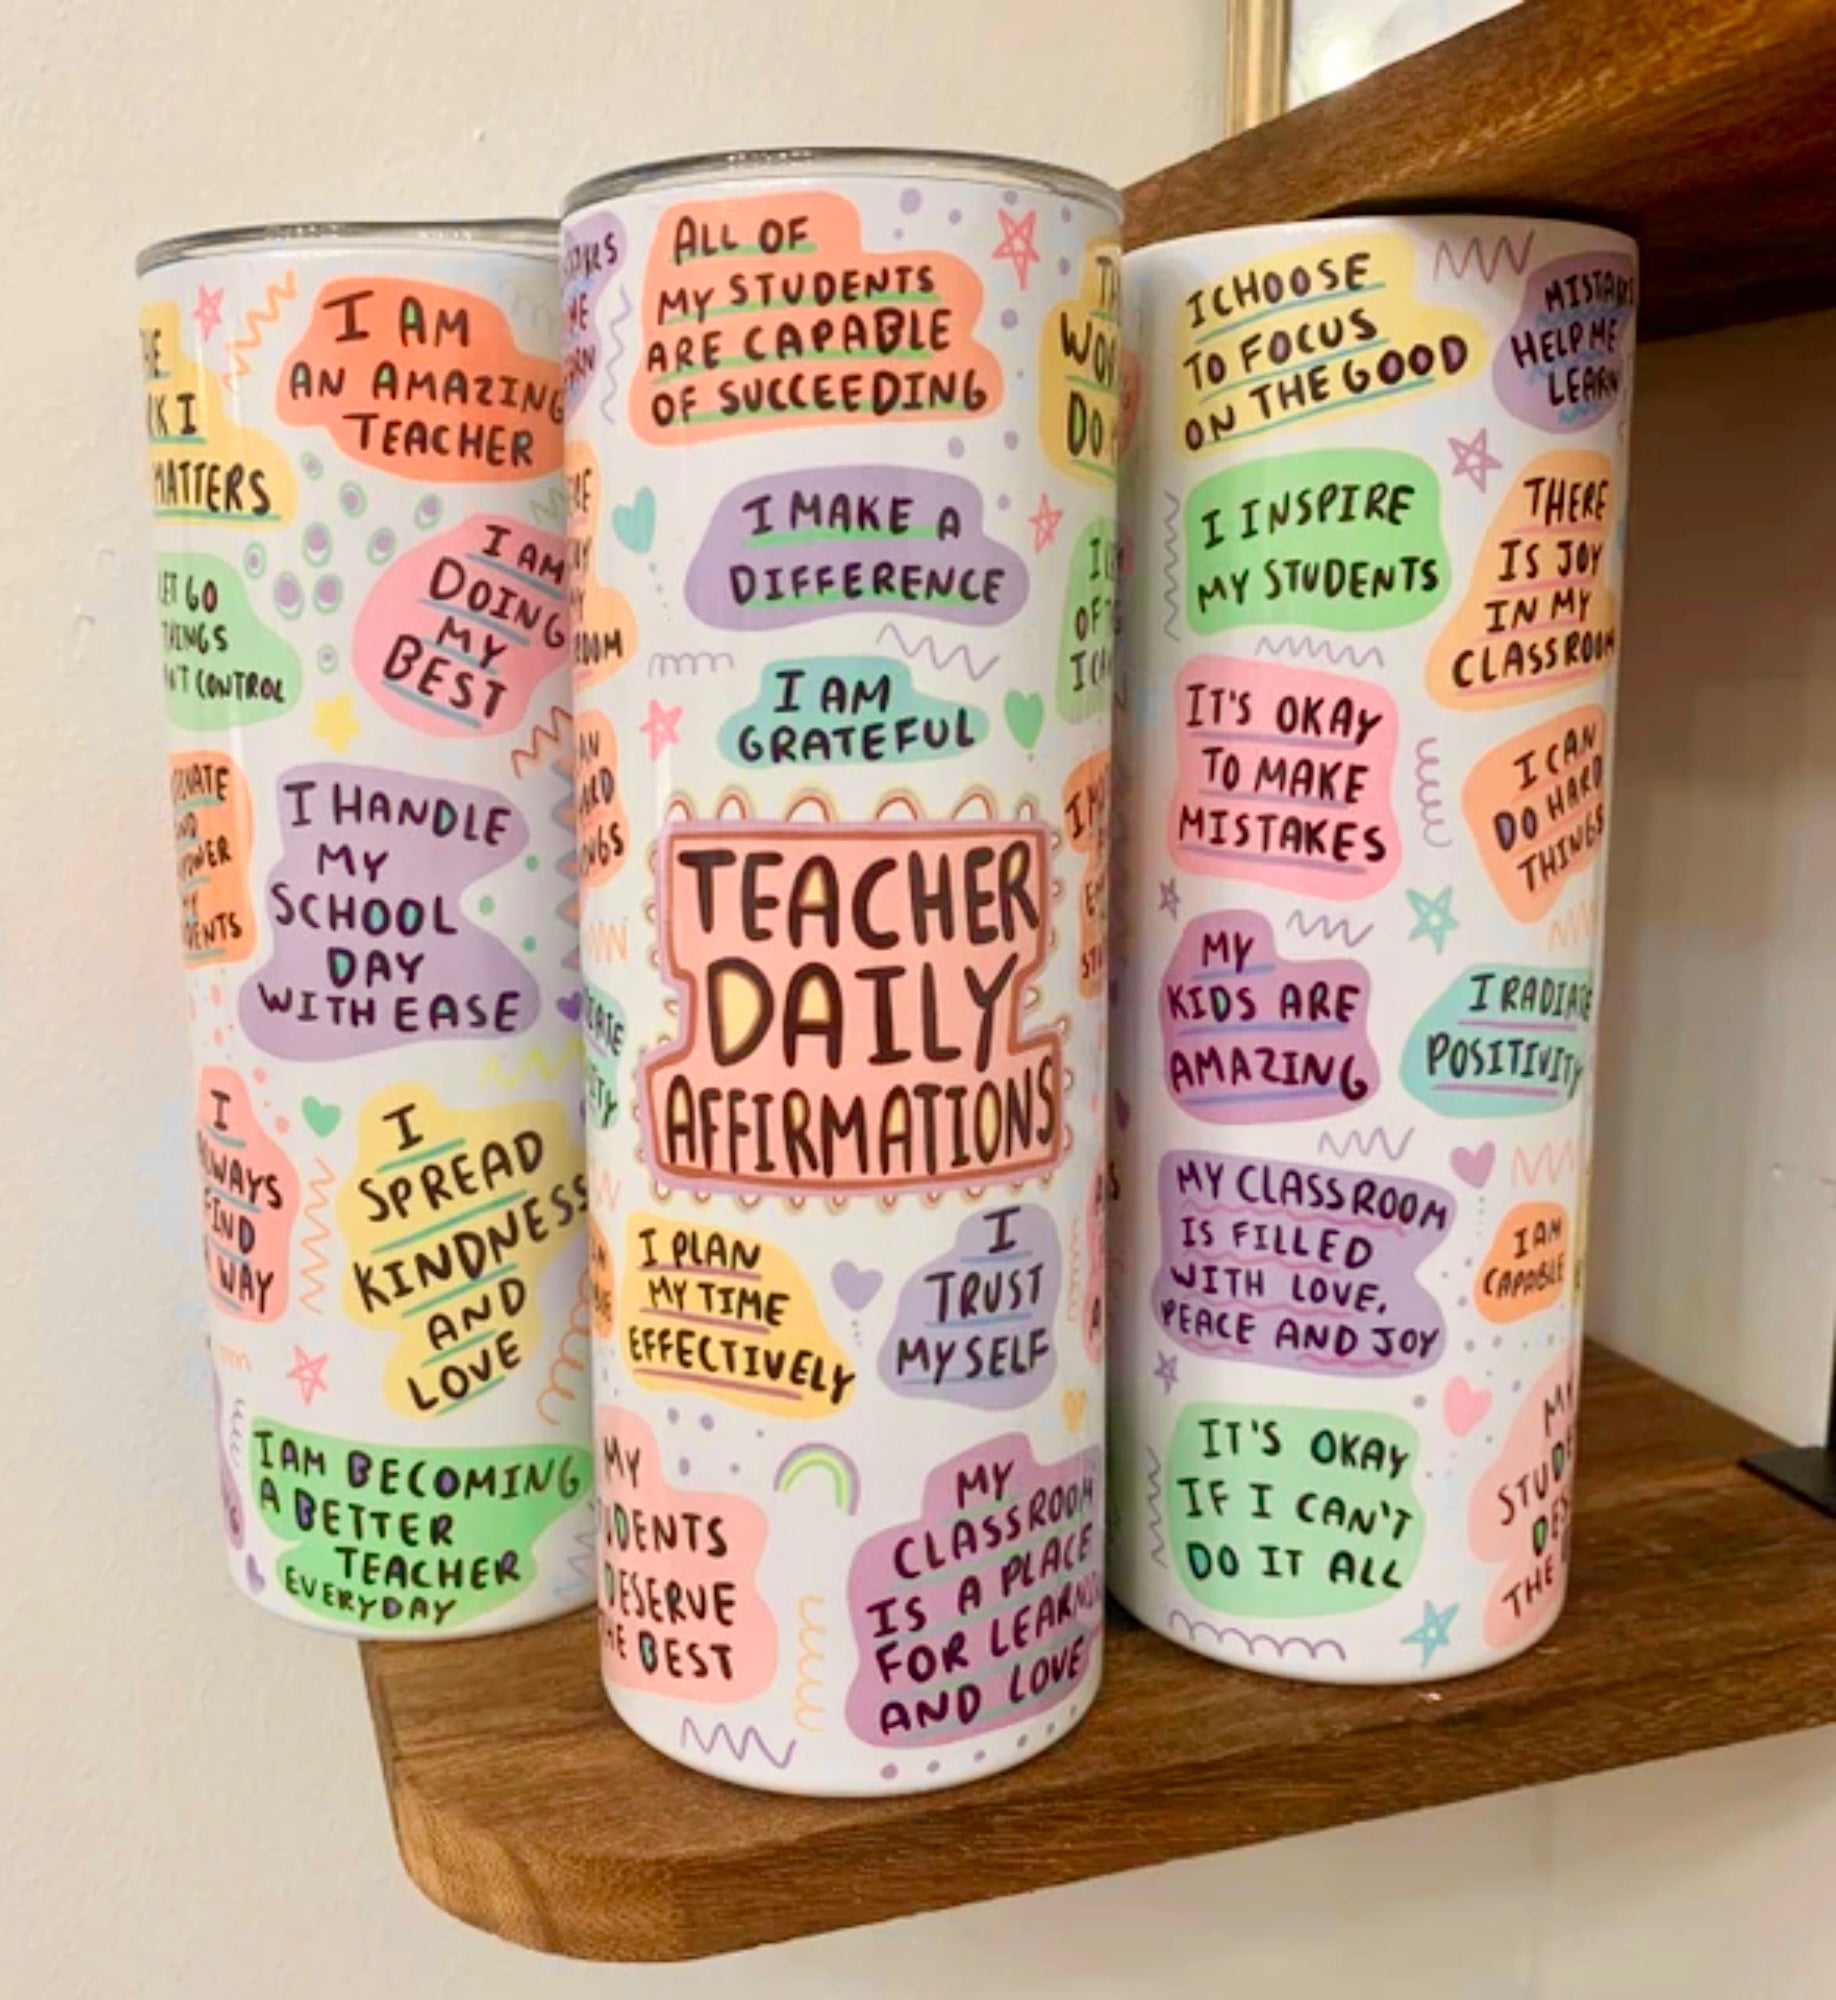 MATTERS
I AM
AN AMAZING
TEACHER
I AM
DOING
MY
BEST
GO
CONTROL
I HANDLE
MY
SCHOOL
DAY
WITH EASE
I
FIND
WAY
I
SPREAD
KINDNESS
AND
LOVE
I AM BECOMING
A BETTER
TEACHER
EVERYDAY
ALL OF
MY STUDENTS
ARE CAPABLE
OF SUCCEEDING
I MAKE A
DIFFERENCE
I AM
GRATEFUL
TEACHER
DAILY
AFFIRMATIONS
I PLAN
MY TIME
EFFECTIVELY
I
TRUST
MYSELF
MY
DENTS
DESERVE
BEST
MY
CLASSROOM
IS A PLACE
FOR LEARNING
AND LOVE
I CHOOSE
TO FOCUS
ON THE GOOD
MISTAKES
HELP ME
LEARN
I INSPIRE
MY STUDENTS
THERE
IS JOY
IN MY
CLASSROOM
IT'S OKAY
TO MAKE
MISTAKES
I CAN
DO HARD
THINGS
MY
KIDS ARE
AMAZING
I RADIATE
POSITIVITY
MY CLASSROOM
IS FILLED
WITH LOVE,
PEACE AND JOY
I AM
CAPABLE
IT'S OKAY
IF I CAN'T
DO IT ALL
MY
THE